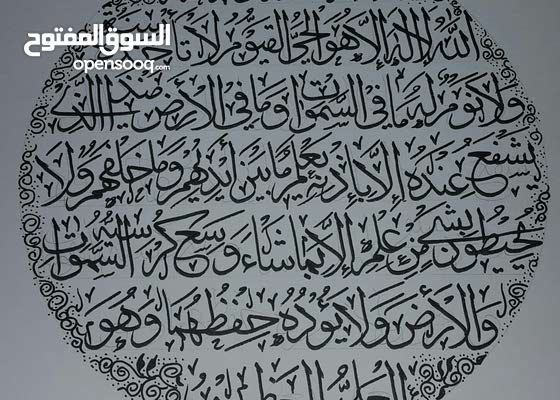 السوق المفتوح
opensooq.com
الله لا إله إلا هو الحي القيوم لا
ولا نوم له ما في السموات وما في الأرض من ذا الذي
يشفع عنده إلا بإذنه يعلم ما بين أيديهم وما خلفهم ولا
يحيطون بشيء من علمه إلا بما شاء وسع كرسيه السموات
والأرض ولا يؤده حفظهما وهو
العلي العظيم